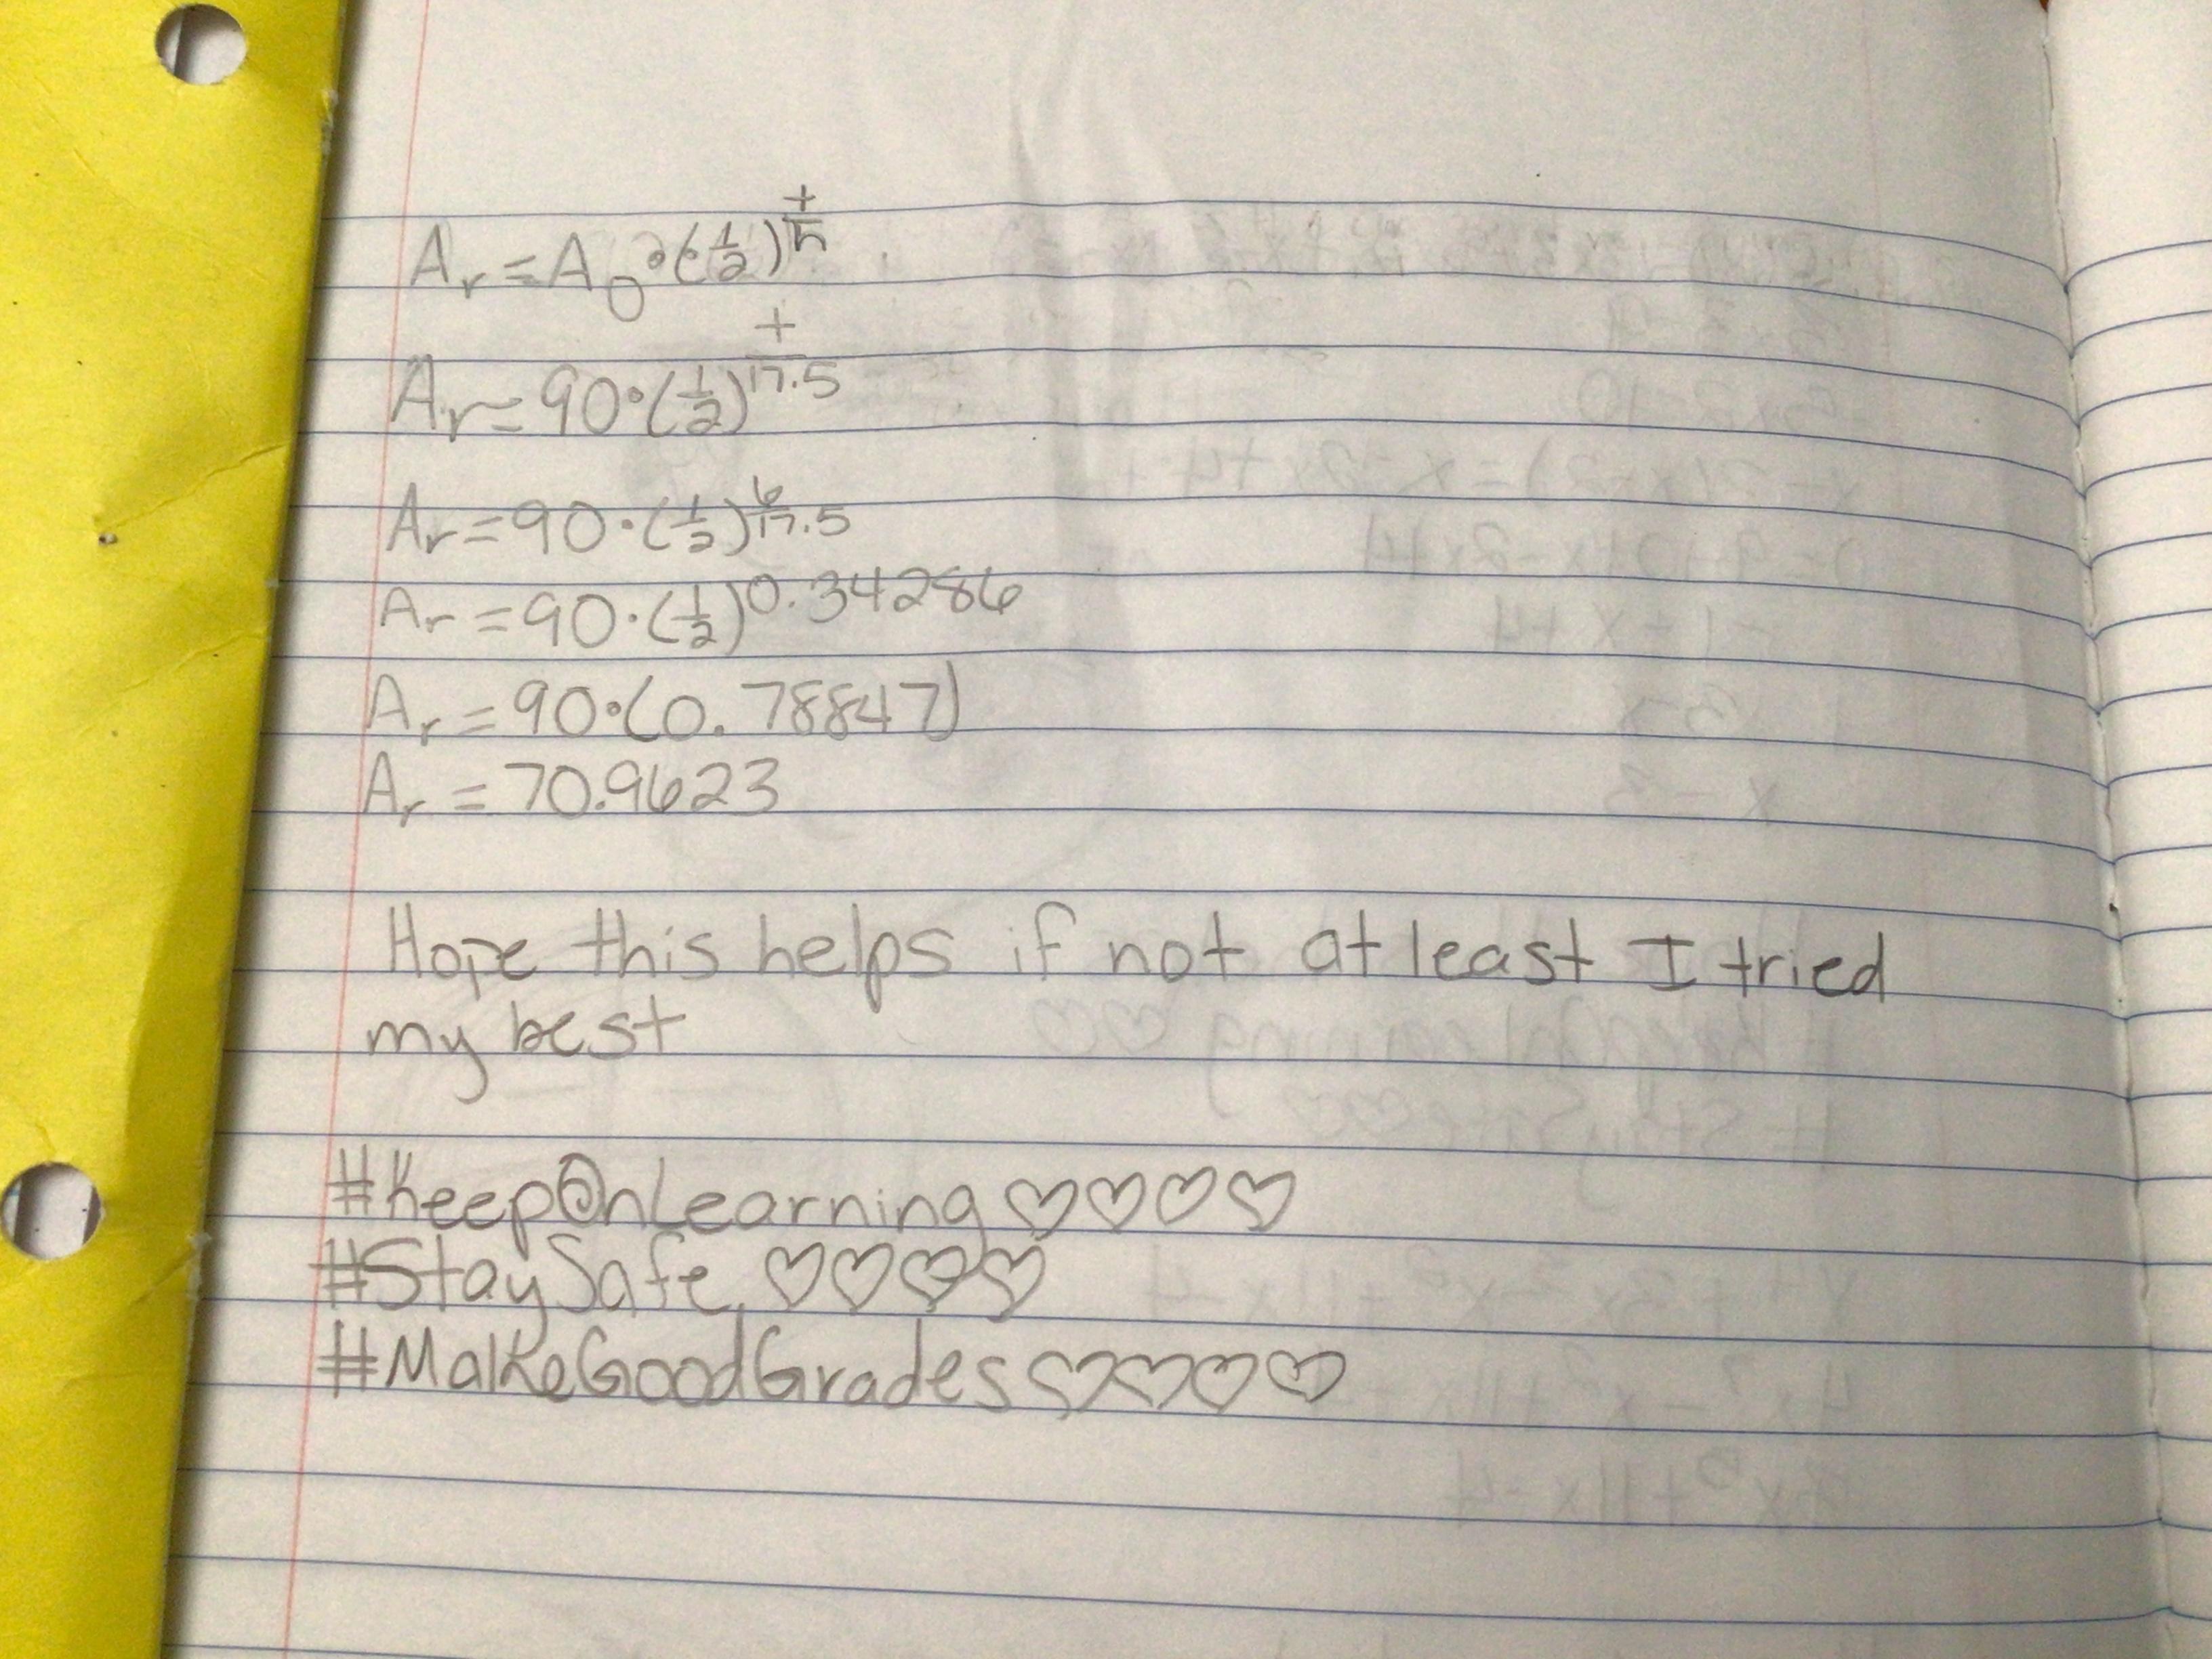 Ar = A0 · (1/2)^t/h
Ar = 90 · (1/2)^t/17.5
Ar = 90 · (1/2)^6/17.5
Ar = 90 · (1/2)^0.34286
Ar = 90 · (0.78847)
Ar = 70.9623
Hope this helps if not at least I tried
my best
#Keep@nLearning♡♡♡♡
#StaySafe♡♡♡♡
#MakeGoodGrades♡♡♡♡